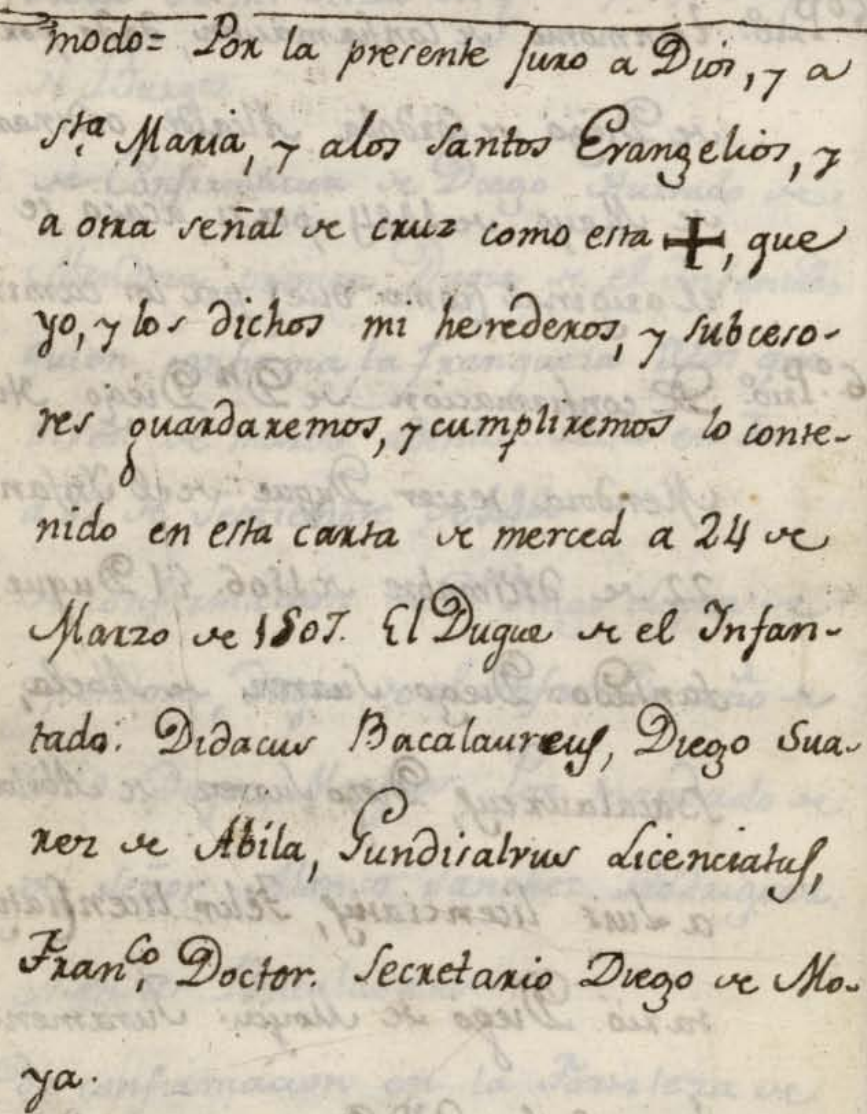 modo= Por la presente juro a Dios, y a
Sta. Maria, y alos Santos Evangelios, y
a otra señal de cruz como esta ✚, que
yo, y los dichos mi herederos, y subceso-
res guardaremos, y cumpliremos lo conte-
nido en esta carta de merced a 24 de
Marzo de 1507. El Duque de el Infan-
tado. Didacus Bacalaureus, Diego Sua-
rez de Abila, Gundisalvus Licenciatus,
Franco. Doctor. Secretario Diego de Mo-
ya.